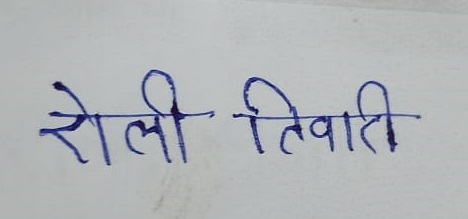 रोली तिवारी